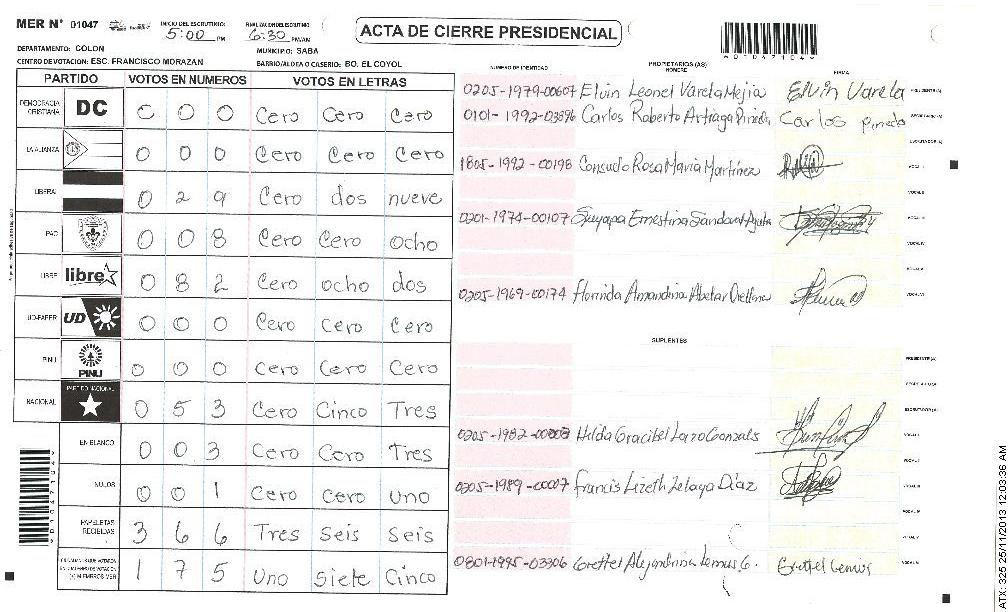 MER N° 01047
INICIO DEL ESCRUTINIO: 5:00 PM
FINALIZACION ESCRUTINIO 6:30 PM/AM
ACTA DE CIERRE PRESIDENCIAL
DEPARTAMENTO: COLON
MUNICIPIO: SABA
CENTRO DE VOTACION: ESC. FRANCISCO MORAZAN
BARRIO/ALDEA O CASERIO: BO. EL COYOL
*01047104*
PARTIDO VOTOS EN NUMEROS VOTOS EN LETRAS
DEMOCRACIA CRISTIANA DC 0 0 0 Cero Cero Cero
LA ALIANZA 0 0 0 Cero Cero Cero
LIBERAL 0 2 9 Cero dos nueve
PAC 0 0 8 Cero Cero ocho
LIBRE libre 0 8 2 Cero ocho dos
UD-FAPER UD 0 0 0 Cero Cero Cero
PINU PINU 0 0 0 Cero Cero Cero
NACIONAL PARTIDO NACIONAL 0 5 3 Cero Cinco Tres
EN BLANCO 0 0 3 Cero Cero Tres
NULOS 0 0 1 Cero Cero uno
PAPELETAS RECIBIDAS 3 6 6 Tres Seis Seis
CIUDADANOS QUE VOTARON (+) MIEMBROS MER 1 7 5 Uno Siete Cinco
*01047104*
NUMERO DE IDENTIDAD PROPIETARIOS (AS) NOMBRE FIRMA
0205-1979-00607 Elvin Leonel Varela Mejia Elvin Varela PRESIDENTE(A)
0101-1992-03896 Carlos Roberto Artiaga Pineda Carlos Pineda SECRETARIO(A)
ESCRUTADOR(A)
1805-1992-00198 Consuelo Rosa Maria Martinez VOCAL I
VOCAL II
0201-1974-00107 Suyapa Ernestina Sandoval VOCAL III
VOCAL IV
VOCAL V
0205-1969-00174 Florinda Amandina Orellana VOCAL VI
SUPLENTES
PRESIDENTE(A)
SECRETARIO(A)
ESCRUTADOR(A)
0205-1982- Hilda Gracibel Lazo VOCAL I
VOCAL II
0205-1989-00007 Francis Lizeth Zelaya Diaz VOCAL III
VOCAL IV
VOCAL V
0801-1995-03306 Grettel Alejandrina Lemus G. Grettel Lemus VOCAL VI
ATX: 325 25/11/2013 12:03:36 AM